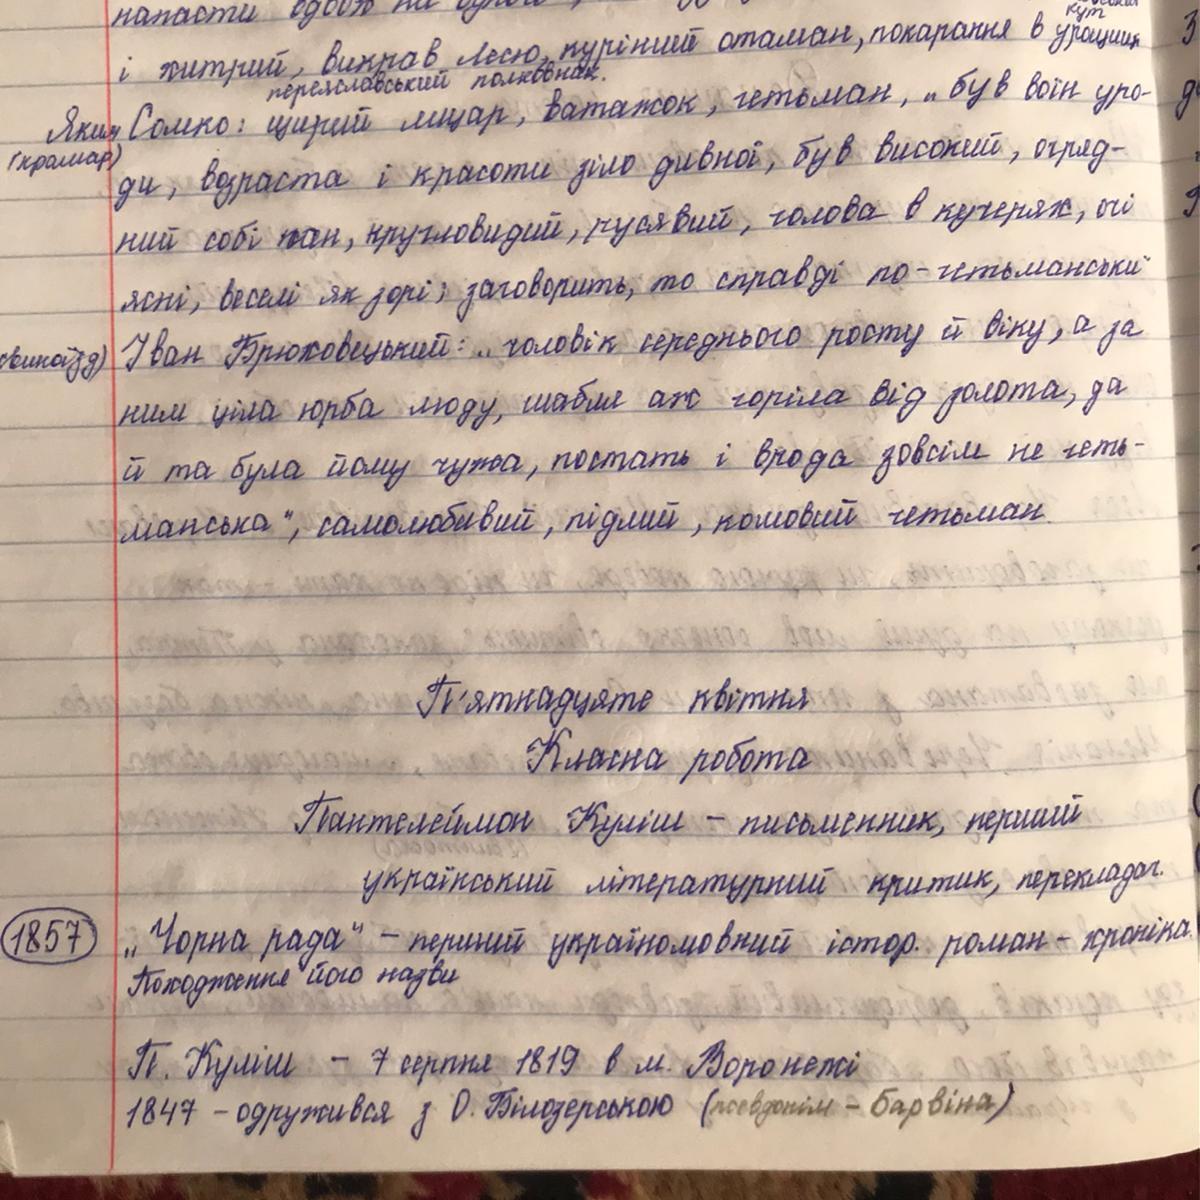 напасти
і хитрий, викрав Лесю, курінний отаман, покарання в урочищі
кут
переяславський полковник.
Яким Сомко: щирий лицар, ватажок, гетьман, „був воїн уро-
(крамар)
ди, возраста і красоти зіло дивної, був високий, огряд-
ний собі пан, кругловидий, русявий, голова в кучерях, очі
ясні, веселі як зорі; заговорить, то справді по-гетьманськи"
Іван Брюховецький: „чоловік середнього росту й віку, а за
ним ціла юрба люду, шабля аж горіла від золота, да
й та була йому чужа, постать і врода зовсім не геть-
манська", самолюбивий, підлий, кошовий гетьман.
П'ятнадцяте квітня
Класна робота
Пантелеймон Куліш – письменник, перший
український літературний критик, перекладач.
1857 „Чорна рада" – перший україномовний істор. роман – хроніка.
Походження його назви
П. Куліш – 7 серпня 1819 в м. Воронежі
1847 – одружився з О. Білозерською (псевдонім – барвіна)